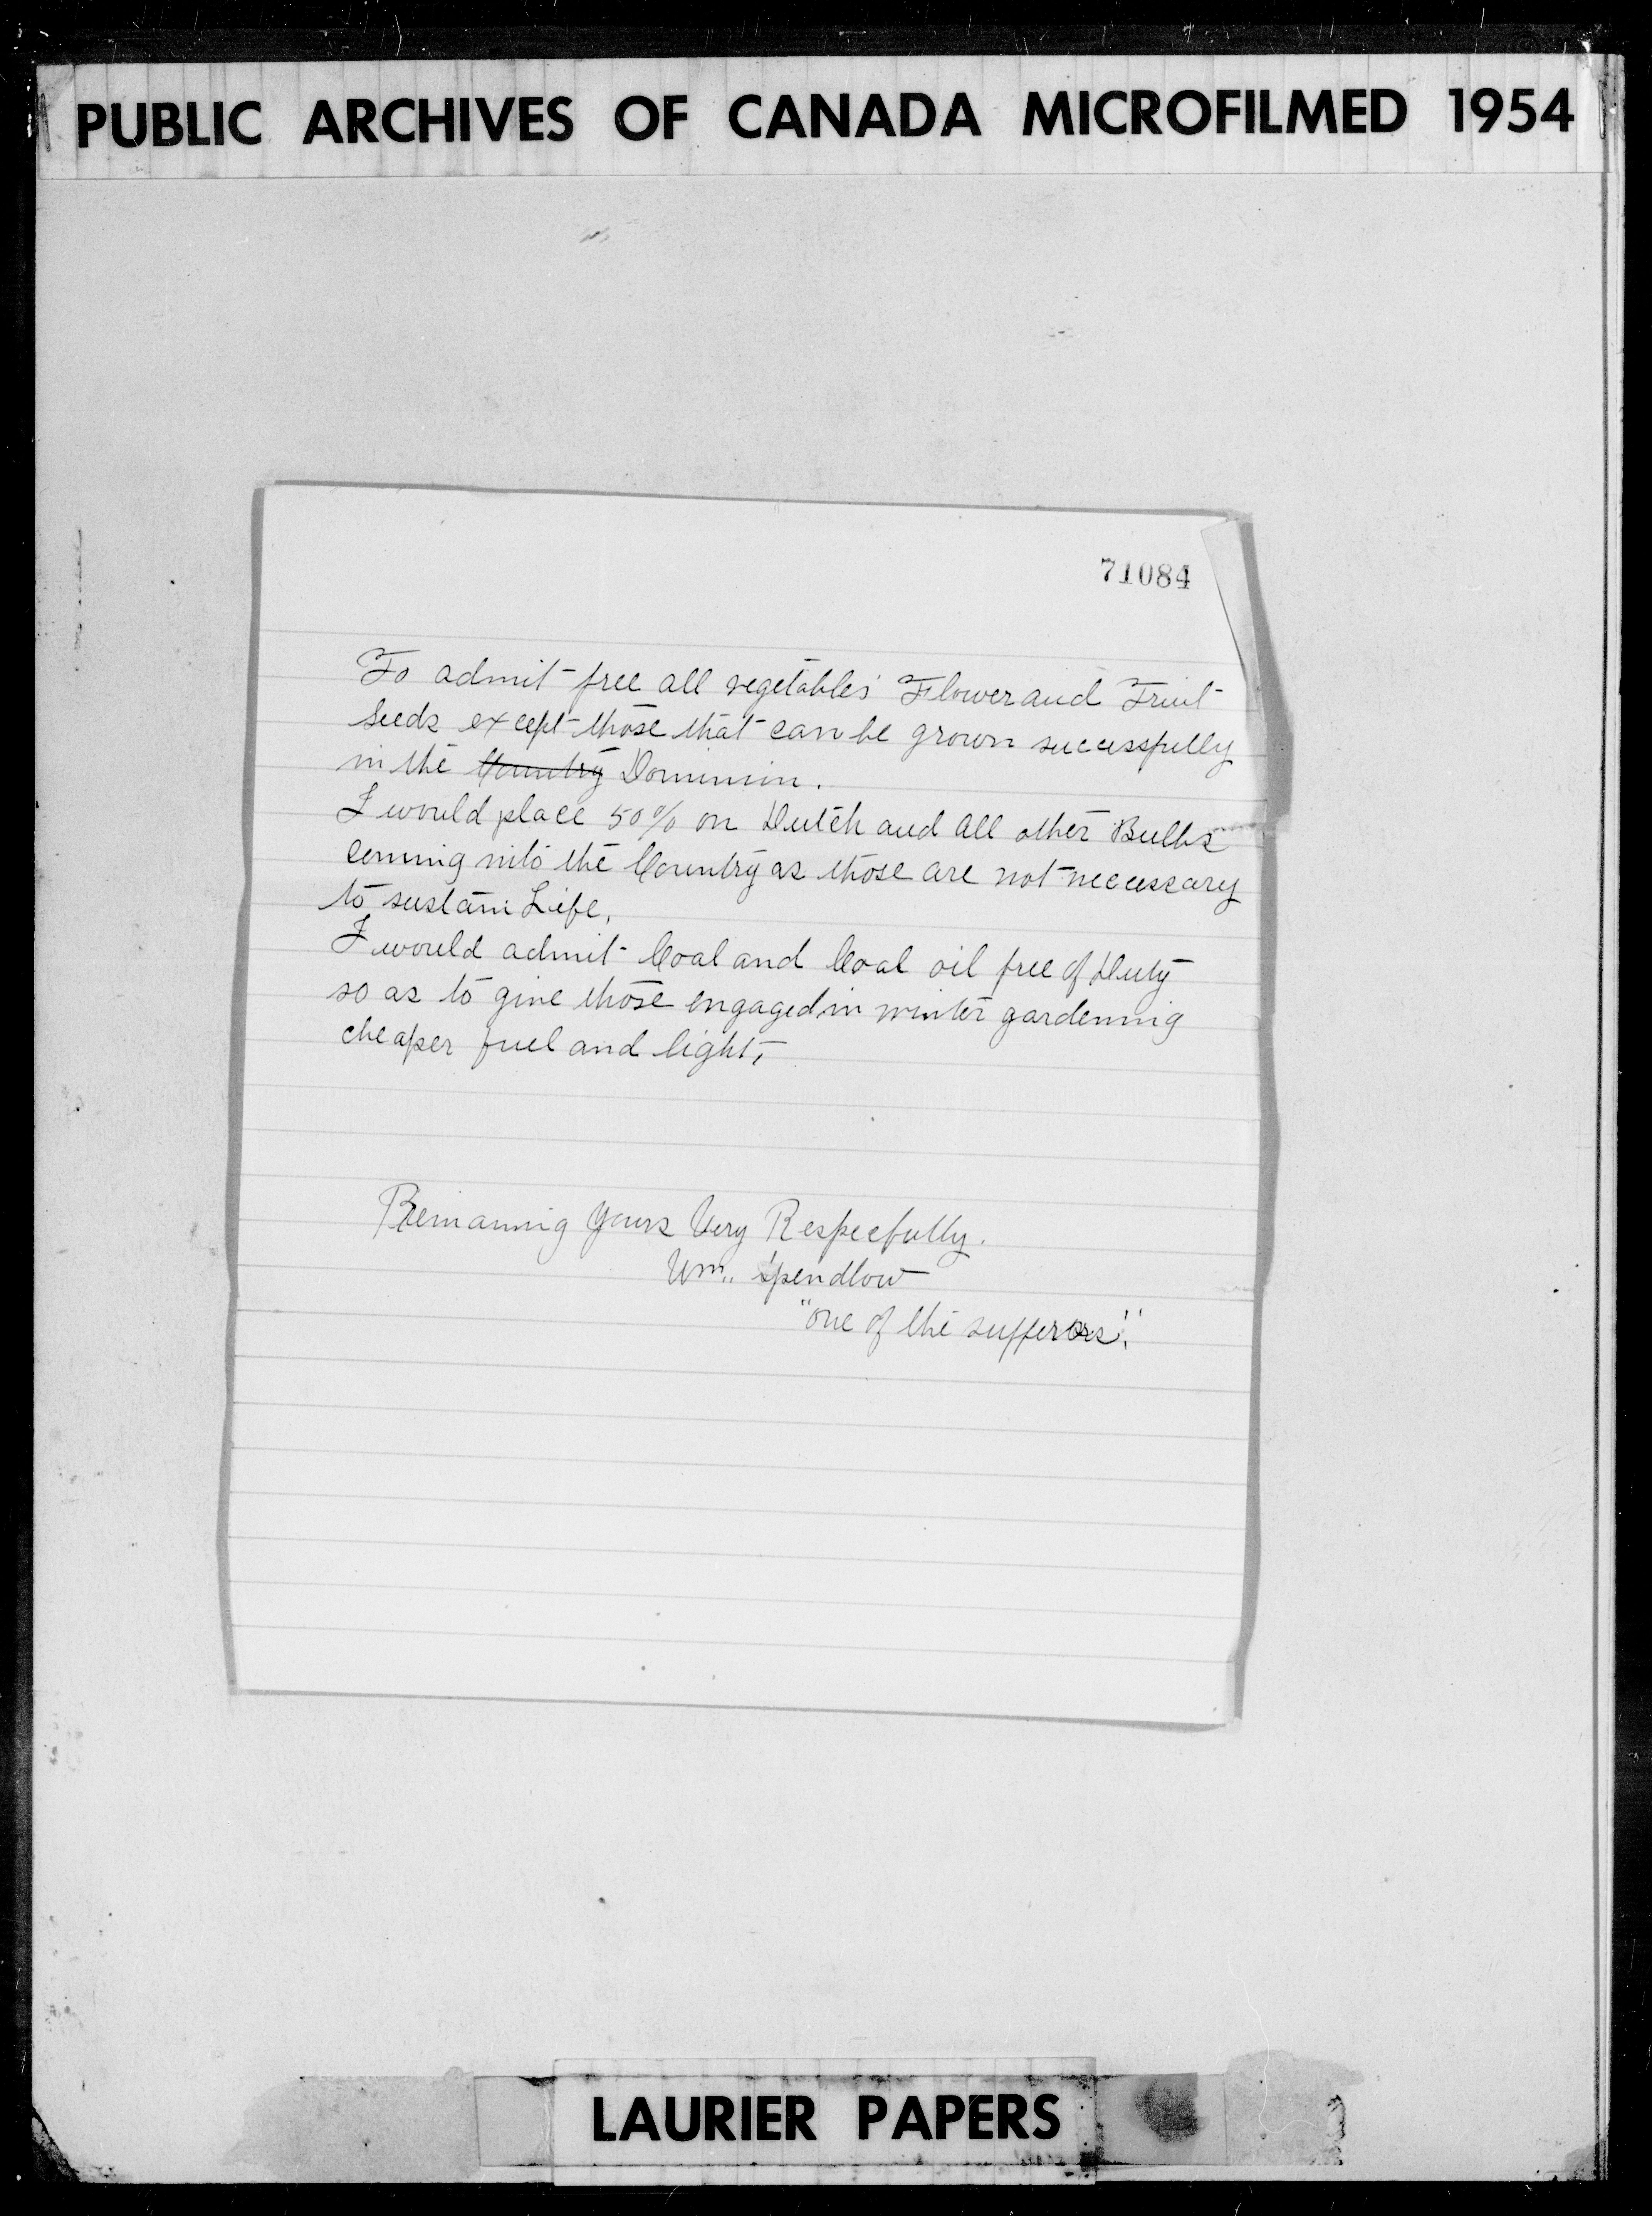 PUBLIC ARCHIVES OF CANADA MICROFILMED 1954
71084
To admit free all vegetables Flower and Fruit
Seeds except those that can be grown successfully
in the Country Dominion.
I would place 50% on Dutch and all other Bulbs
coming into the Country as those are not neccessary
to sustain Life.
I would admit Coal and Coal oil free of Duty
so as to give those engaged in winter gardening
cheaper fuel and light,
Remaining Yours Very Respecfully.
Wm. Spendlow
"one of the sufferors".
LAURIER PAPERS